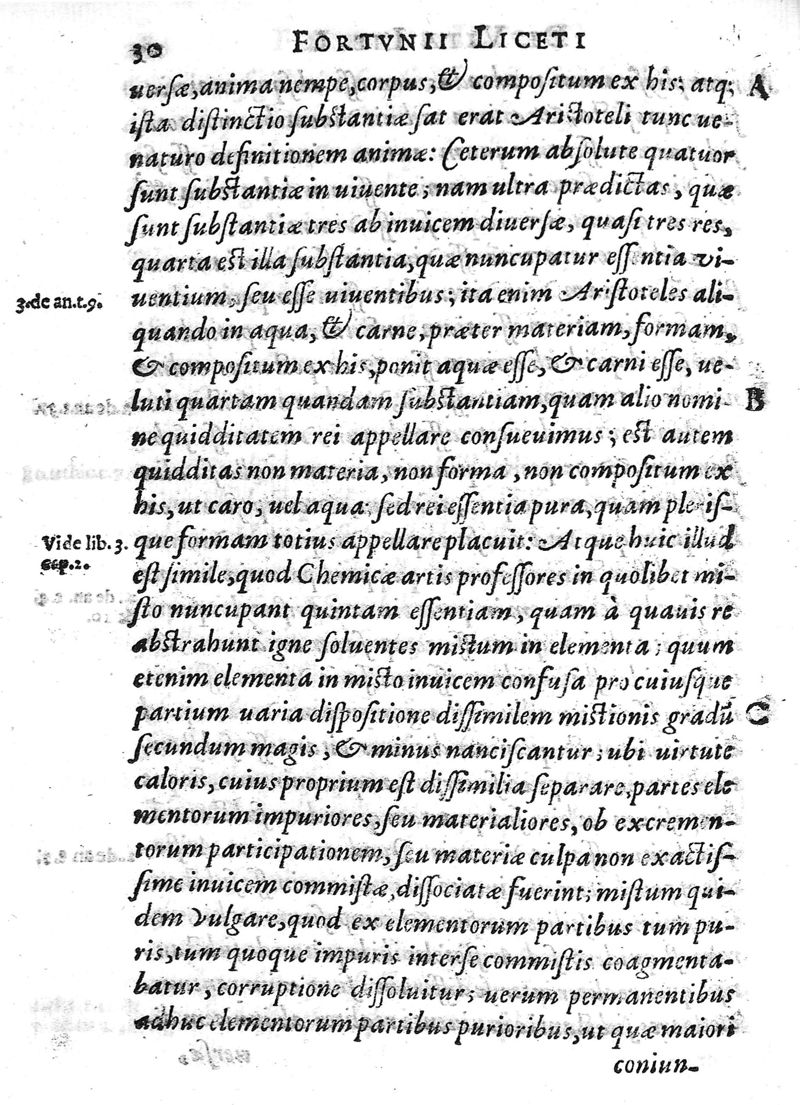 30 FORTVNII LICETI
uersæ, anima nempe, corpus, & compositum ex his; atq; A
ista distinctio substantiæ sat erat Aristoteli tunc ue-
naturo definitionem animæ: Ceterum absolute quatuor
sunt substantiæ in uiuente; nam ultra prædictas, quæ
sunt substantiæ tres ab inuicem diuersæ, quasi tres res,
quarta est illa substantia, quæ nuncupatur essentia vi-
3. de an. t. 9. uentium, seu esse uiuentibus; ita enim Aristoteles ali-
quando in aqua, & carne, præter materiam, formam,
& compositum ex his, ponit aquæ esse, & carni esse, ue-
luti quartam quandam substantiam, quam alio nomi- B
ne quidditatem rei appellare consueuimus; est autem
quidditas non materia, non forma, non compositum ex
his, ut caro, uel aqua: sed rei essentia pura, quam pleris-
Vide lib. 3. que formam totius appellare placuit: Atque huic illud
cap. 2. est simile, quod Chemicæ artis professores in quolibet mi-
sto nuncupant quintam essentiam, quam à quauis re
abstrahunt igne soluentes mistum in elementa; quum
etenim elementa in misto inuicem confusa pro cuiusque
partium uaria dispositione dissimilem mistionis gradū C
secundum magis, & minus nanciscantur; ubi uirtute
caloris, cuius proprium est dissimilia separare, partes ele
mentorum impuriores, seu materialiores, ob excremen-
torum participationem, seu materiæ culpa non exactis-
sime inuicem commistæ, dissociatæ fuerint; mistum qui-
dem vulgare, quod ex elementorum partibus tum pu-
ris, tum quoque impuris inter se commistis coagmenta-
batur, corruptione dissoluitur; uerum permanentibus
adhuc elementorum partibus purioribus, ut quæ maiori
coniun-